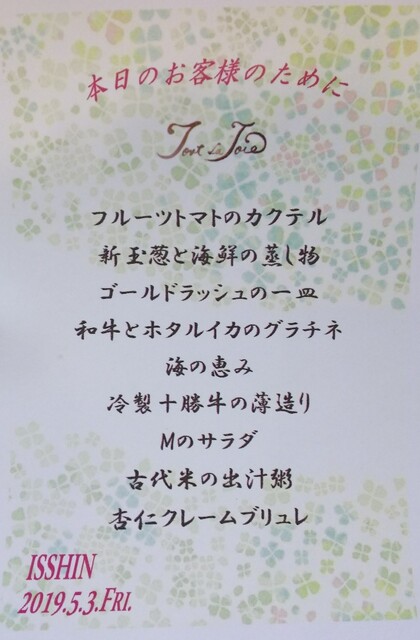 本日のお客様のために
Tout la Joie
フルーツトマトのカクテル
新玉葱と海鮮の蒸し物
ゴールドラッシュの一皿
和牛とホタルイカのグラチネ
海の恵み
冷製十勝牛の薄造り
Mのサラダ
古代米の出汁粥
杏仁クレームブリュレ
ISSHIN
2019.5.3.FRI.